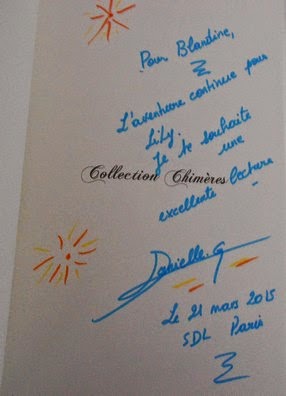 Pour Blandine,
L'aventure continue pour
Lily.
Je te souhaite
une
Collection Chimères
excellente lecture
Danielle.G
Le 21 mars 2015
SDL Paris